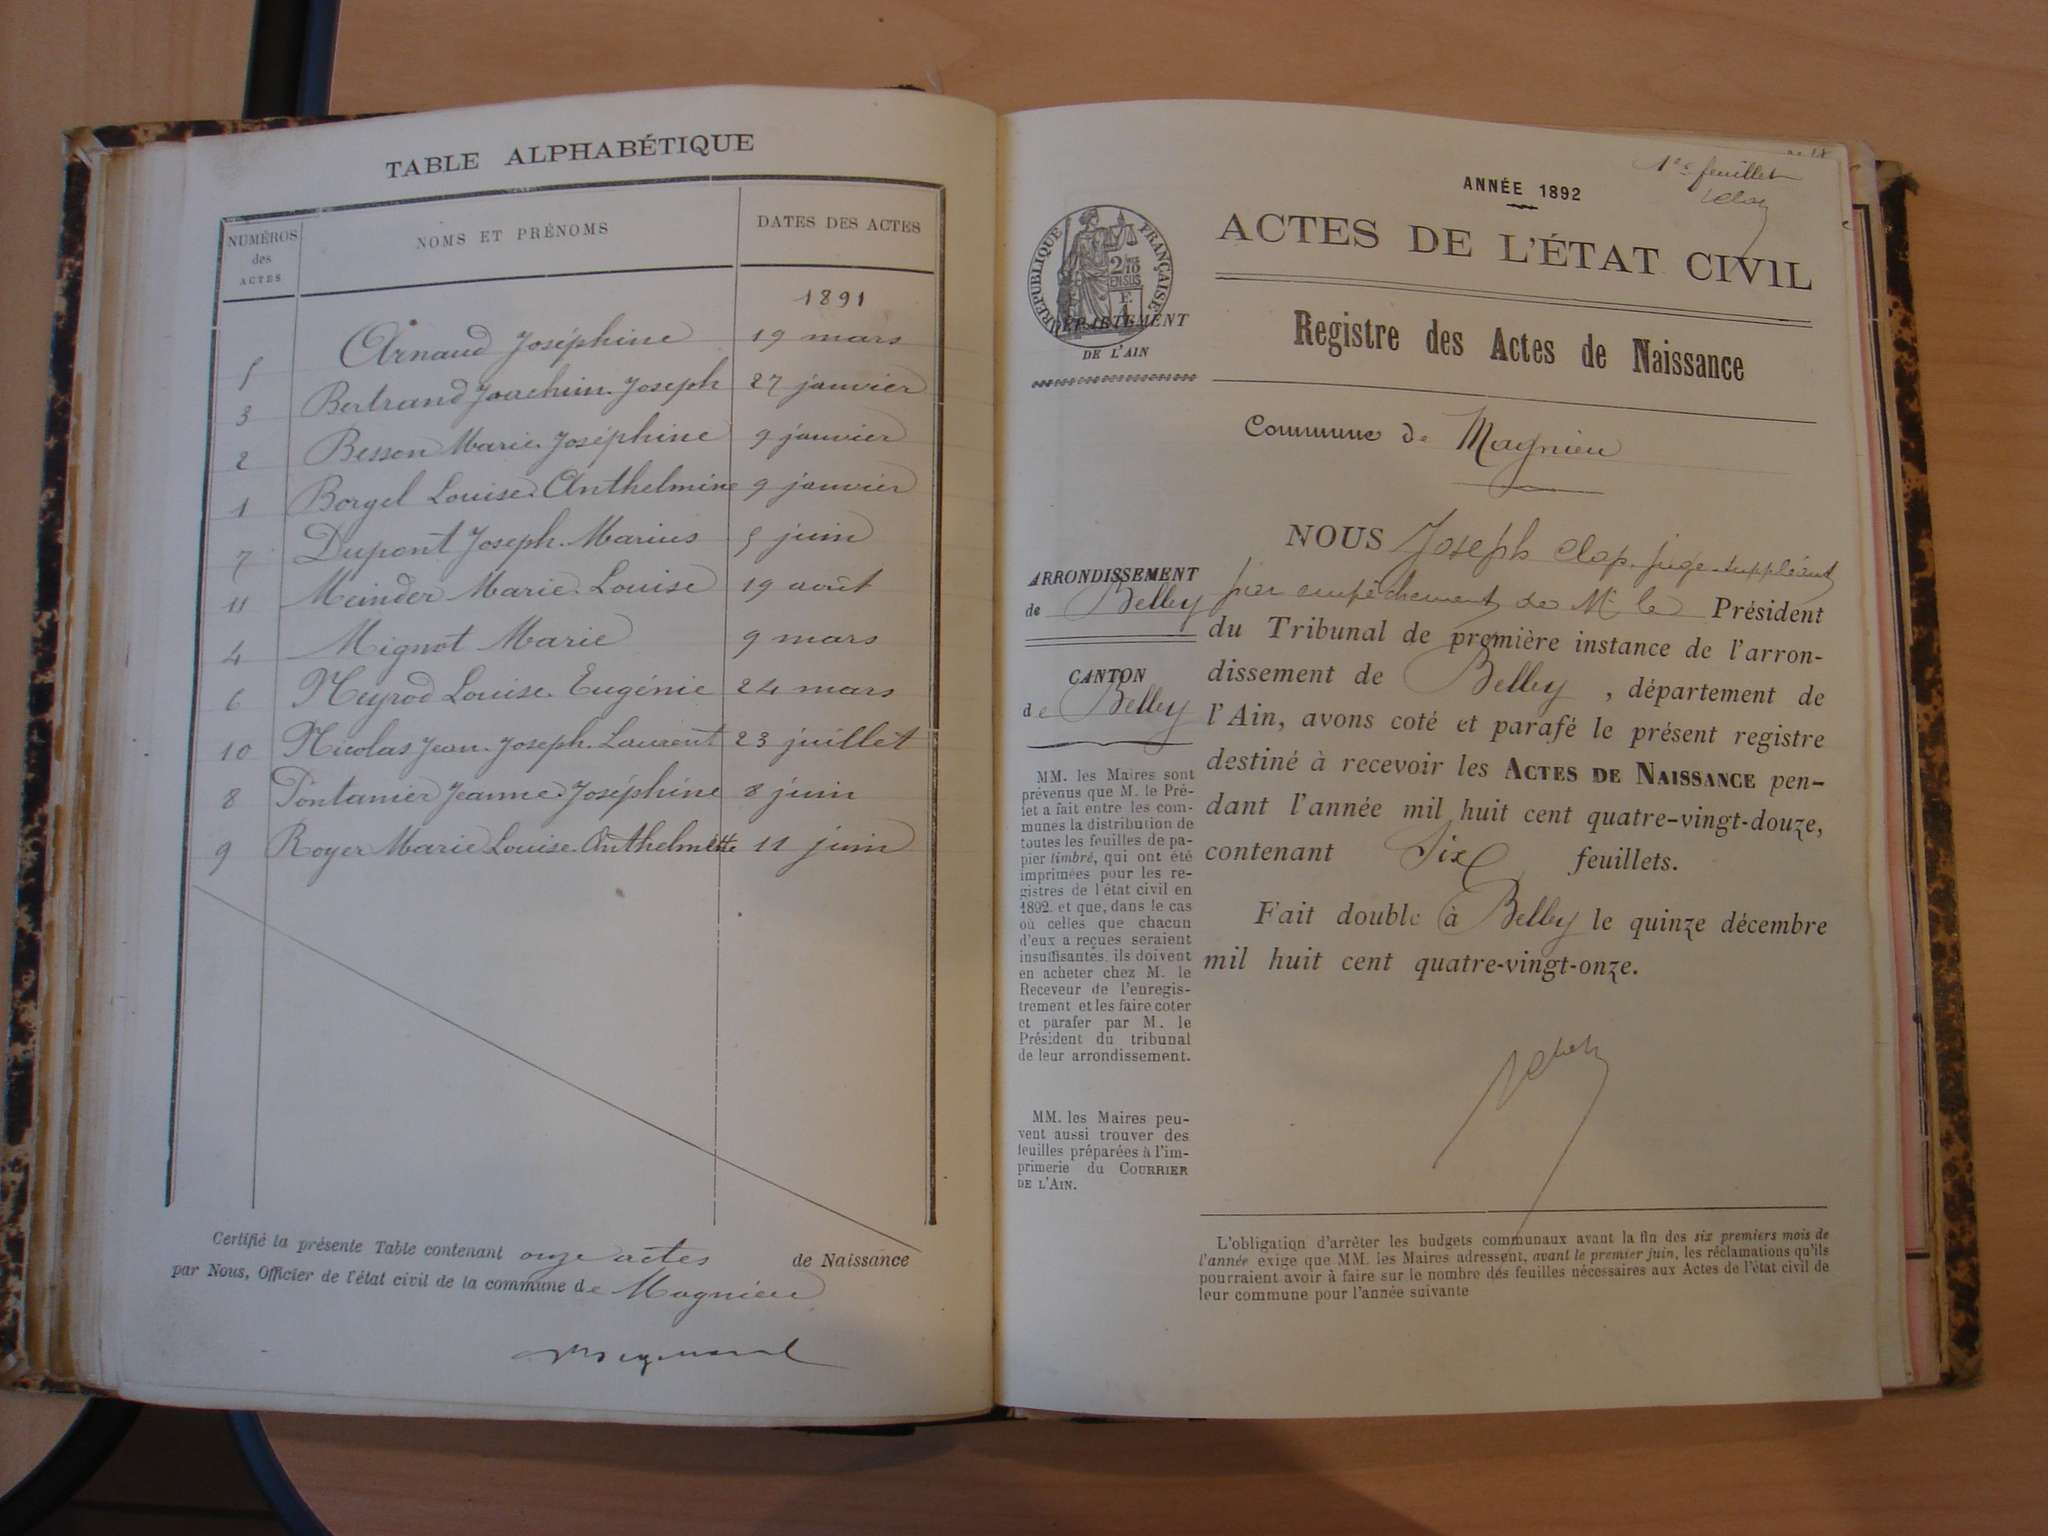 TABLE ALPHABÉTIQUE
NUMÉROS des ACTES
NOMS ET PRÉNOMS
DATES DES ACTES
1891
5 Arnaud Joséphine 19 mars
3 Bertrand Joachim Joseph 27 janvier
2 Besson Marie Joséphine 9 janvier
1 Borgel Louise Anthelmine 9 janvier
7 Dupont Joseph Marius 5 juin
11 Meinder Marie Louise 19 août
4 Mignot Marie 9 mars
6 Neyrod Louise Eugénie 24 mars
10 Nicolas Jean Joseph Laurent 23 juillet
8 Pontanier Jeanne Joséphine 8 juin
9 Royer Marie Louise Anthelmette 11 juin
Certifié la présente Table contenant onze actes de Naissance
par Nous, Officier de l'état civil de la commune de Magnieu
1er feuillet
ANNÉE 1892
ACTES DE L'ÉTAT CIVIL
Registre des Actes de Naissance
RÉPUBLIQUE FRANÇAISE
2/10 EN SUS
DÉPARTEMENT
DE L'AIN
Commune de Magnieu
ARRONDISSEMENT
de Belley
CANTON
de Belley
MM. les Maires sont
prévenus que M. le Pré-
fet a fait entre les com-
munes la distribution de
toutes les feuilles de pa-
pier timbré, qui ont été
imprimées pour les re-
gistres de l'état civil en
1892. et que, dans le cas
où celles que chacun
d'eux a reçues seraient
insuffisantes, ils doivent
en acheter chez M. le
Receveur de l'enregis-
trement et les faire coter
et parafer par M. le
Président du tribunal
de leur arrondissement.
MM. les Maires peu-
vent aussi trouver des
feuilles préparées à l'im-
primerie du COURRIER
DE L'AIN.
NOUS Joseph Clap, juge-suppléant
par empêchement de Mr le Président
du Tribunal de première instance de l'arron-
dissement de Belley, département de
l'Ain, avons coté et parafé le présent registre
destiné à recevoir les ACTES DE NAISSANCE pen-
dant l'année mil huit cent quatre-vingt-douze,
contenant Six feuillets.
Fait double à Belley le quinze décembre
mil huit cent quatre-vingt-onze.
L'obligation d'arrêter les budgets communaux avant la fin des six premiers mois de
l'année exige que MM. les Maires adressent, avant le premier juin, les réclamations qu'ils
pourraient avoir à faire sur le nombre des feuilles nécessaires aux Actes de l'état civil de
leur commune pour l'année suivante